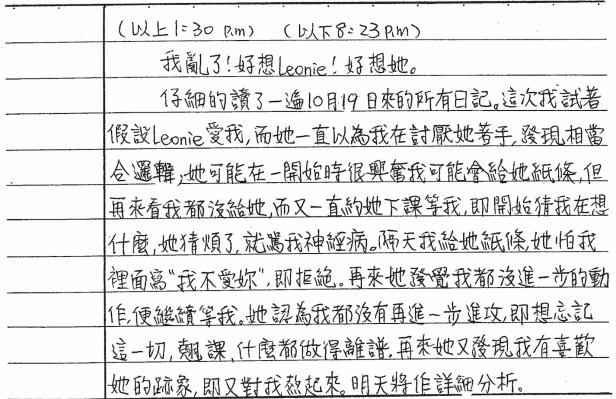 （以上1:30 p.m） （以下8:23p.m）
我亂了!好想Leonie!好想她。
仔細的讀了一遍10月19日來的所有日記。這次我試著
假設Leonie愛我,而她一直以為我在討厭她著手,發現相當
合邏輯,她可能在一開始時很興奮我可能會給她紙條,但
再來看我都沒給她,而又一直約她下課等我,即開始猜我在想
什麼,她猜煩了,就罵我神經病。隔天我給她紙條,她怕我
裡面寫“我不愛妳”,即拒絕。再來她發覺我都沒進一步的動
作,便繼續等我。她認為我都沒有再進一步進攻,即想忘記
這一切,翹課,什麼都做得離譜。再來她又發現我有喜歡
她的跡象,即又對我熱起來。明天將作詳細分析。